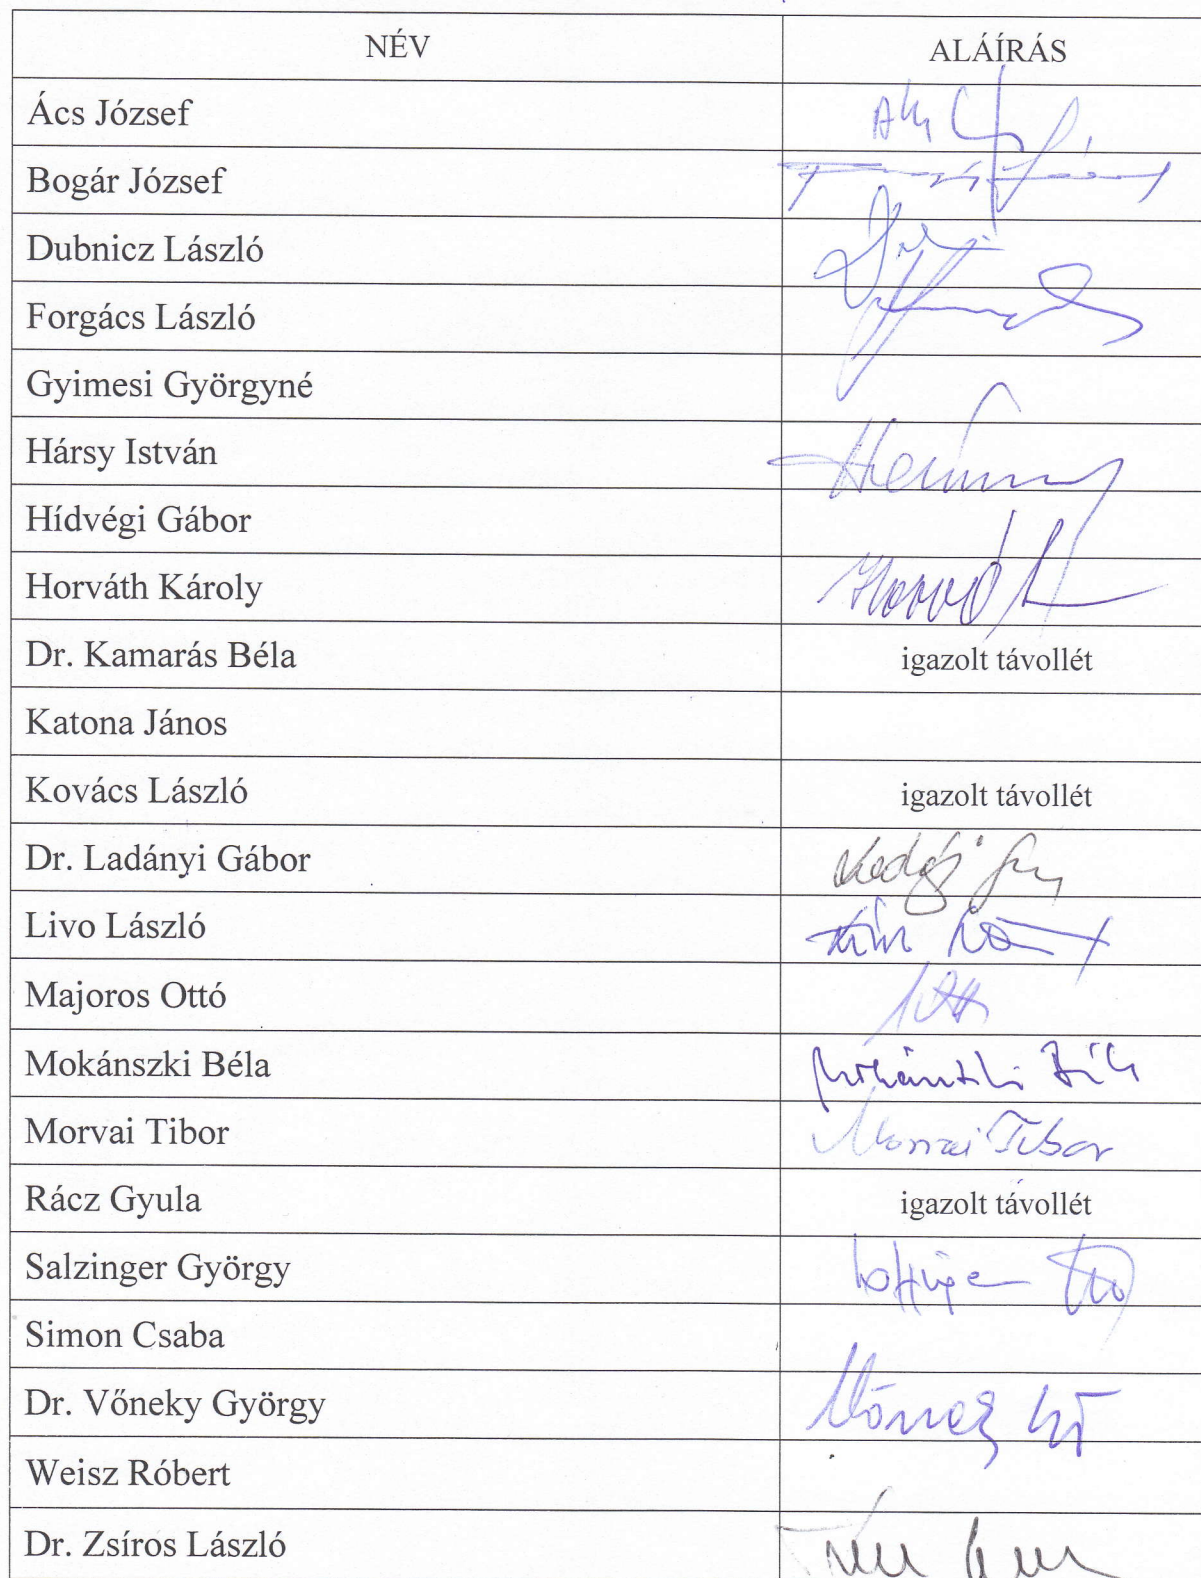 NÉV ALÁÍRÁS
Ács József
Bogár József
Dubnicz László
Forgács László
Gyimesi Györgyné
Hársy István
Hídvégi Gábor
Horváth Károly
Dr. Kamarás Béla igazolt távollét
Katona János
Kovács László igazolt távollét
Dr. Ladányi Gábor
Livo László
Majoros Ottó
Mokánszki Béla Mokánszki Béla
Morvai Tibor Morvai Tibor
Rácz Gyula igazolt távollét
Salzinger György
Simon Csaba
Dr. Vőneky György
Weisz Róbert
Dr. Zsíros László